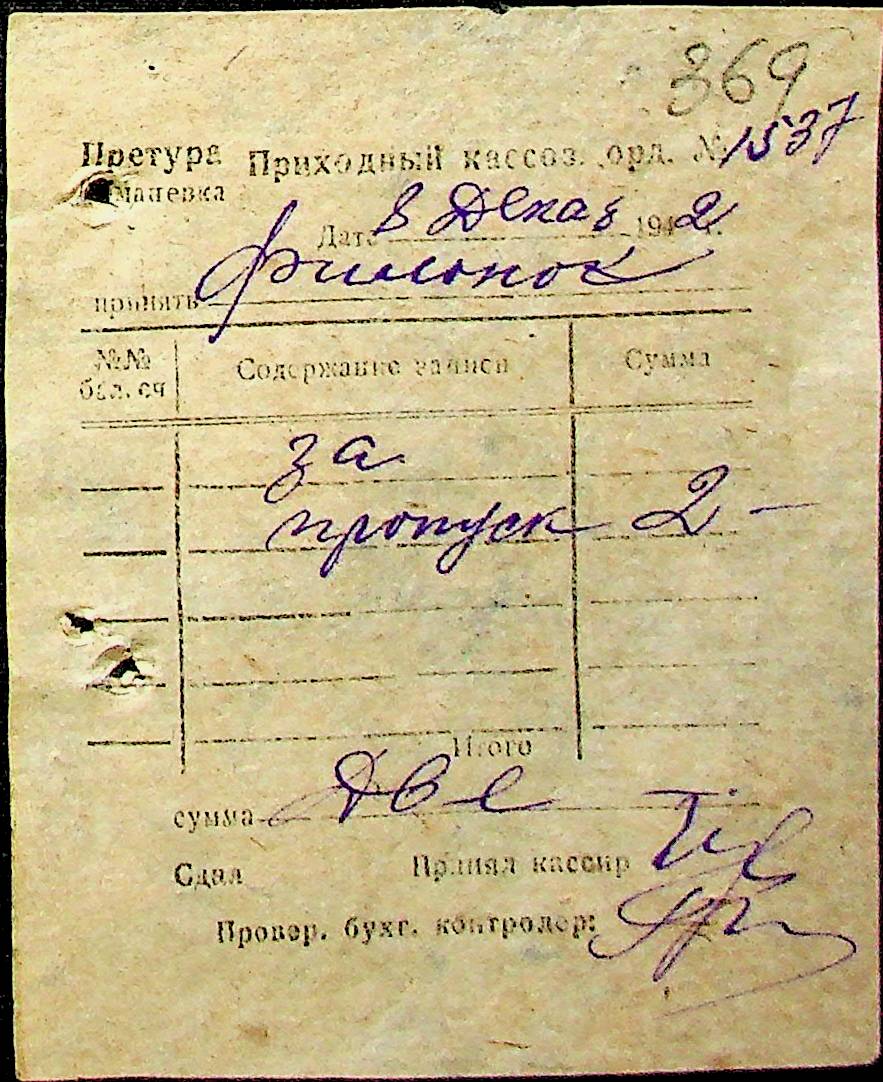 369
Претура Приходный кассов. орд. № 1537
мановка
Дата 8 Декаб 1942 г.
принять Филонок
№№ бал. сч Содержание записи Сумма
за
пропуск 2 —
Итого
сумма Две
Сдал Принял кассир
Провер. бухг. контролер: